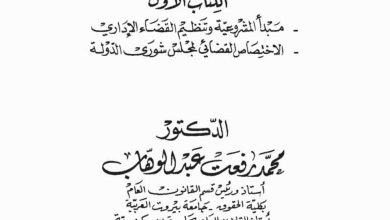 الكتاب الأول
- مبدأ المشروعية وتنظيم القضاء الإداري
- الاختصاص القضائي لمجلس شورى الدولة
الدكتور
محمد رفعت عبد الوهاب
أستاذ ورئيس قسم القانون العام
بكلية الحقوق. جامعة بيروت العربية